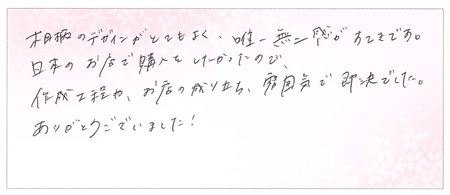 木目柄のデザインがとてもよく、唯一無二感がすてきです。
日本のお店で購入をしたかったので、
作成工程や、お店の成り立ち、雰囲気で即決でした。
ありがとうございました!